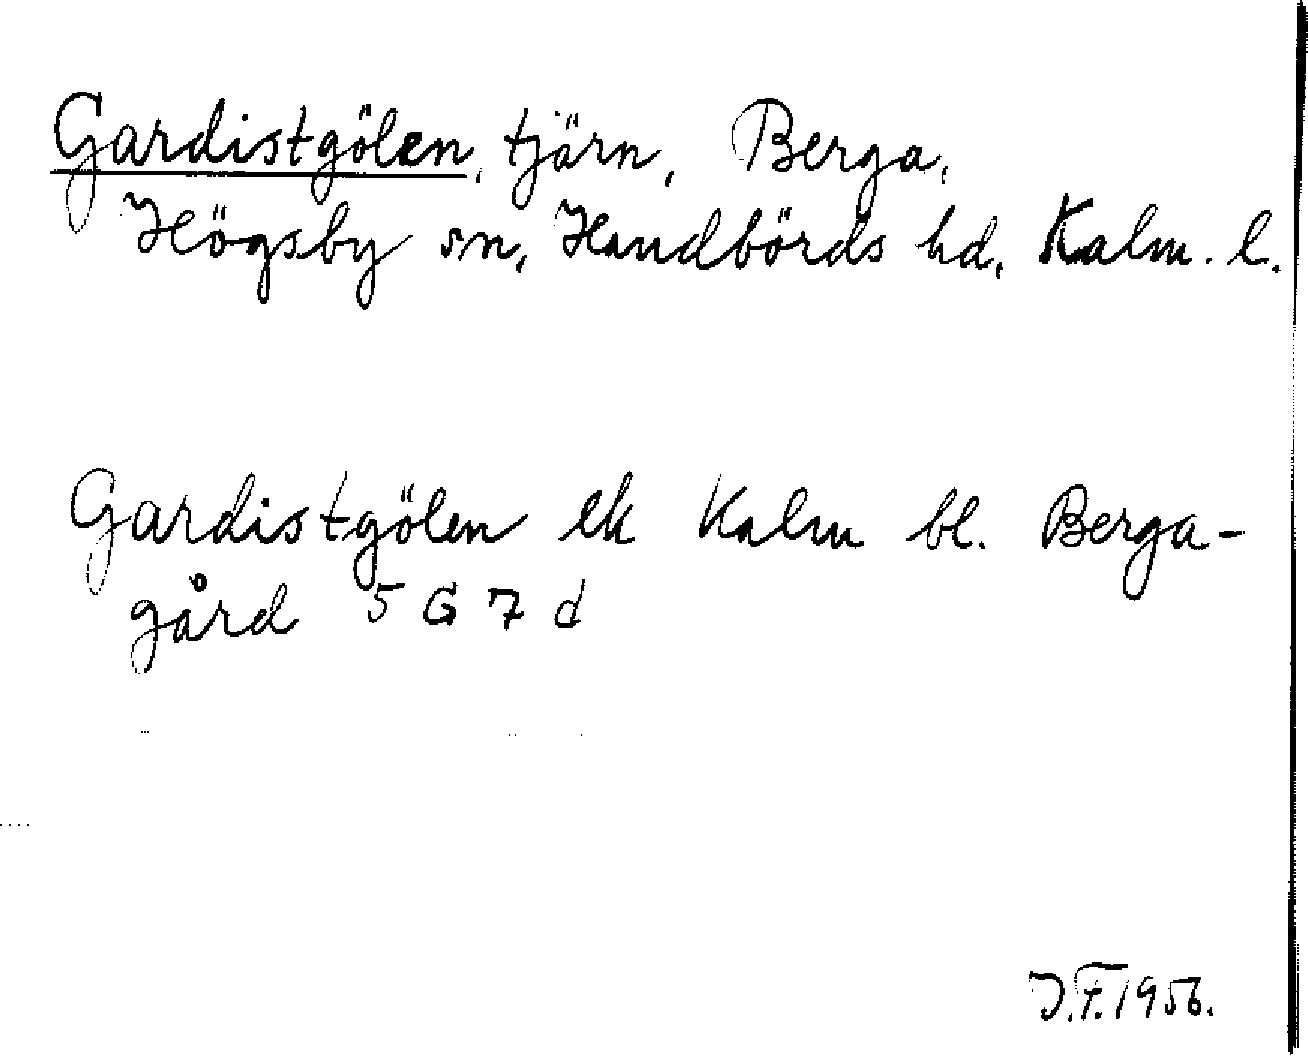 Gardistgölen, tjärn, Berga,
Högsby sn, Handbörds hd, Kalm. l.
Gardistgölen ek Kalm bl. Berga-
gård 5 G 7 d
J.F. 1956.